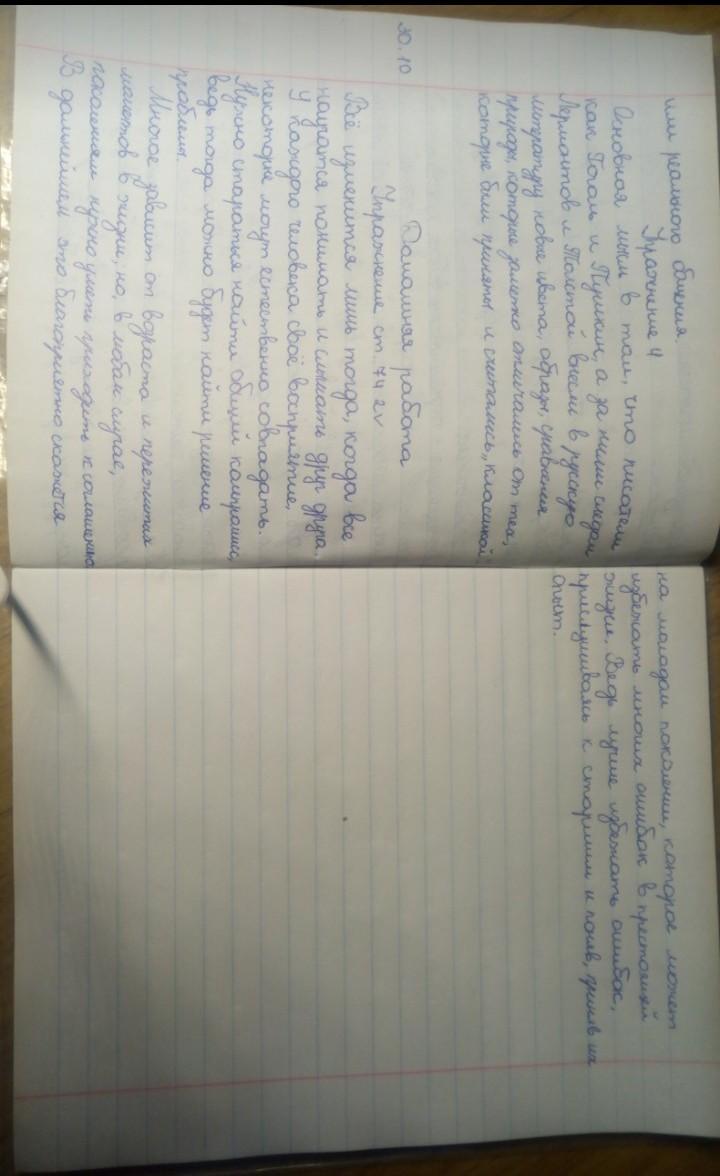 или реального общения
Упражнение 4
Основная мысль в том, что писатели
как Гоголь и Пушкин, а за ними следом
Лермонтов и Толстой внесли в русскую
литературу новые цвета, образы, сравнения
природы, которые заметно отличались от тех,
которые были приняты и считались „класикой"
30.10
Домашняя работа
Упражнение ст. 74 2v
Всё изменится лишь тогда, когда все
научатся понимать и слышать друг друга.
У каждого человека своё восприятие,
некоторые могут естественно совпадать.
Нужно стараться найти общий компромис,
ведь тогда можно будет найти решение
проблем.
Многое зависит от возраста и пережитых
моментов в жизни, но, в любом случае,
поколениям нужно уметь приходить к соглашению
В дальнейшем это благоприятно скажется
на молодом поколении, которое может
избежать многих ошибок в престоящей
жизни. Ведь лучше избежать ошибок,
прислушиваясь к старшим и поняв, приняв их
опыт.